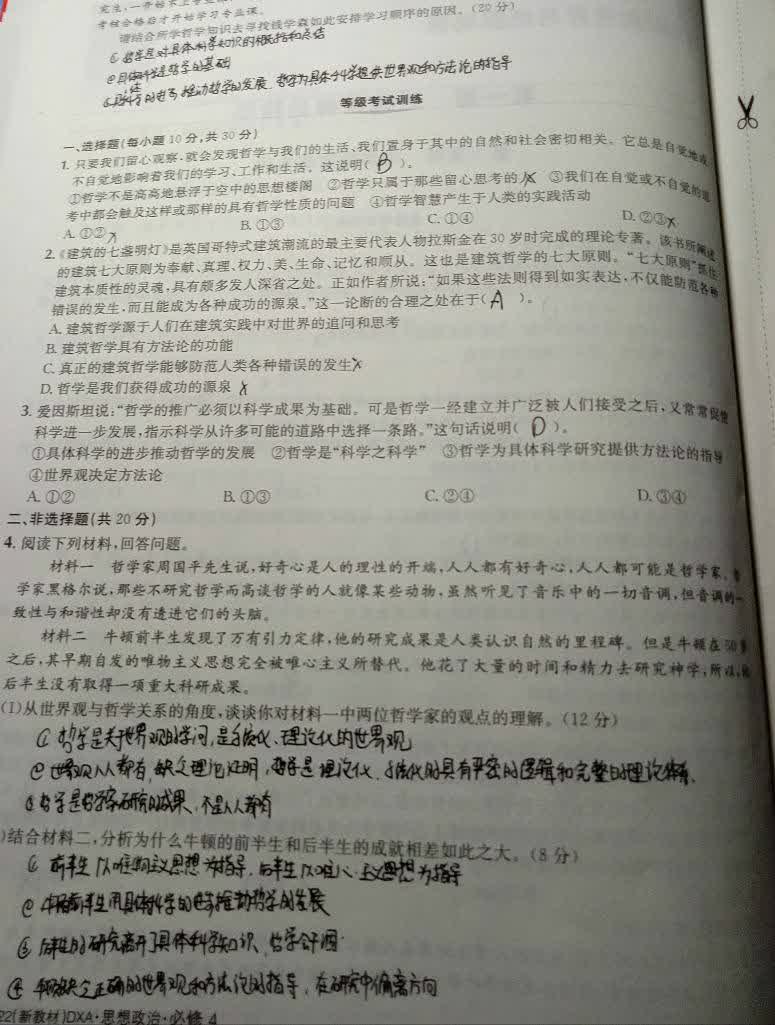 考核合格后才开始学习专业课。
请结合所学哲学知识去寻找钱学森如此安排学习顺序的原因。(20 分)
①哲学是对具体科学知识的概括和总结
②具体科学是哲学的基础
推动哲学的发展,哲学为具体科学提供世界观和方法论的指导
等级考试训练
一、选择题(每小题 10 分,共 30 分)
1. 只要我们留心观察,就会发现哲学与我们的生活、我们置身于其中的自然和社会密切相关。它总是自觉地或
不自觉地影响着我们的学习、工作和生活。这说明( B )。
①哲学不是高高地悬浮于空中的思想楼阁 ②哲学只属于那些留心思考的人 ③我们在自觉或不自觉的思
考中都会触及这样或那样的具有哲学性质的问题 ④哲学智慧产生于人类的实践活动
A. ①② B. ①③ C. ①④ D. ②③
2.《建筑的七盏明灯》是英国哥特式建筑潮流的最主要代表人物拉斯金在 30 岁时完成的理论专著。该书所阐述
的建筑七大原则为奉献、真理、权力、美、生命、记忆和顺从。这也是建筑哲学的七大原则。“七大原则”抓住
建筑本质性的灵魂,具有颇多发人深省之处。正如作者所说:“如果这些法则得到如实表达,不仅能防范各种
错误的发生,而且能成为各种成功的源泉。”这一论断的合理之处在于( A )。
A. 建筑哲学源于人们在建筑实践中对世界的追问和思考
B. 建筑哲学具有方法论的功能
C. 真正的建筑哲学能够防范人类各种错误的发生
D. 哲学是我们获得成功的源泉
3. 爱因斯坦说:“哲学的推广必须以科学成果为基础。可是哲学一经建立并广泛被人们接受之后,又常常促使
科学进一步发展,指示科学从许多可能的道路中选择一条路。”这句话说明( D )。
①具体科学的进步推动哲学的发展 ②哲学是“科学之科学” ③哲学为具体科学研究提供方法论的指导
④世界观决定方法论
A. ①② B. ①③ C. ②④ D. ③④
二、非选择题(共 20 分)
4. 阅读下列材料,回答问题。
材料一 哲学家周国平先生说,好奇心是人的理性的开端,人人都有好奇心,人人都可能是哲学家。哲
学家黑格尔说,那些不研究哲学而高谈哲学的人就像某些动物,虽然听见了音乐中的一切音调,但音调的一
致性与和谐性却没有透进它们的头脑。
材料二 牛顿前半生发现了万有引力定律,他的研究成果是人类认识自然的里程碑。但是牛顿在 50 岁
之后,其早期自发的唯物主义思想完全被唯心主义所替代。他花了大量的时间和精力去研究神学,所以,他
后半生没有取得一项重大科研成果。
(1)从世界观与哲学关系的角度,谈谈你对材料一中两位哲学家的观点的理解。(12 分)
①哲学是关于世界观的学问,是系统化、理论化的世界观
②世界观人人都有,缺乏理论证明,哲学是理论化、系统化的具有严密的逻辑和完整的理论体系.
③哲学是哲学家研究的成果,不是人人都有
)结合材料二,分析为什么牛顿的前半生和后半生的成就相差如此之大。(8 分)
①前半生以唯物主义思想为指导,后半生以唯心主义思想为指导
②牛顿前半生用具体科学的进步推动哲学的发展
③后半生的研究离开了具体科学知识,哲学会干涸
④牛顿缺乏正确的世界观和方法论的指导,在研究中偏离方向
22(新教材)DXA·思想政治·必修 4